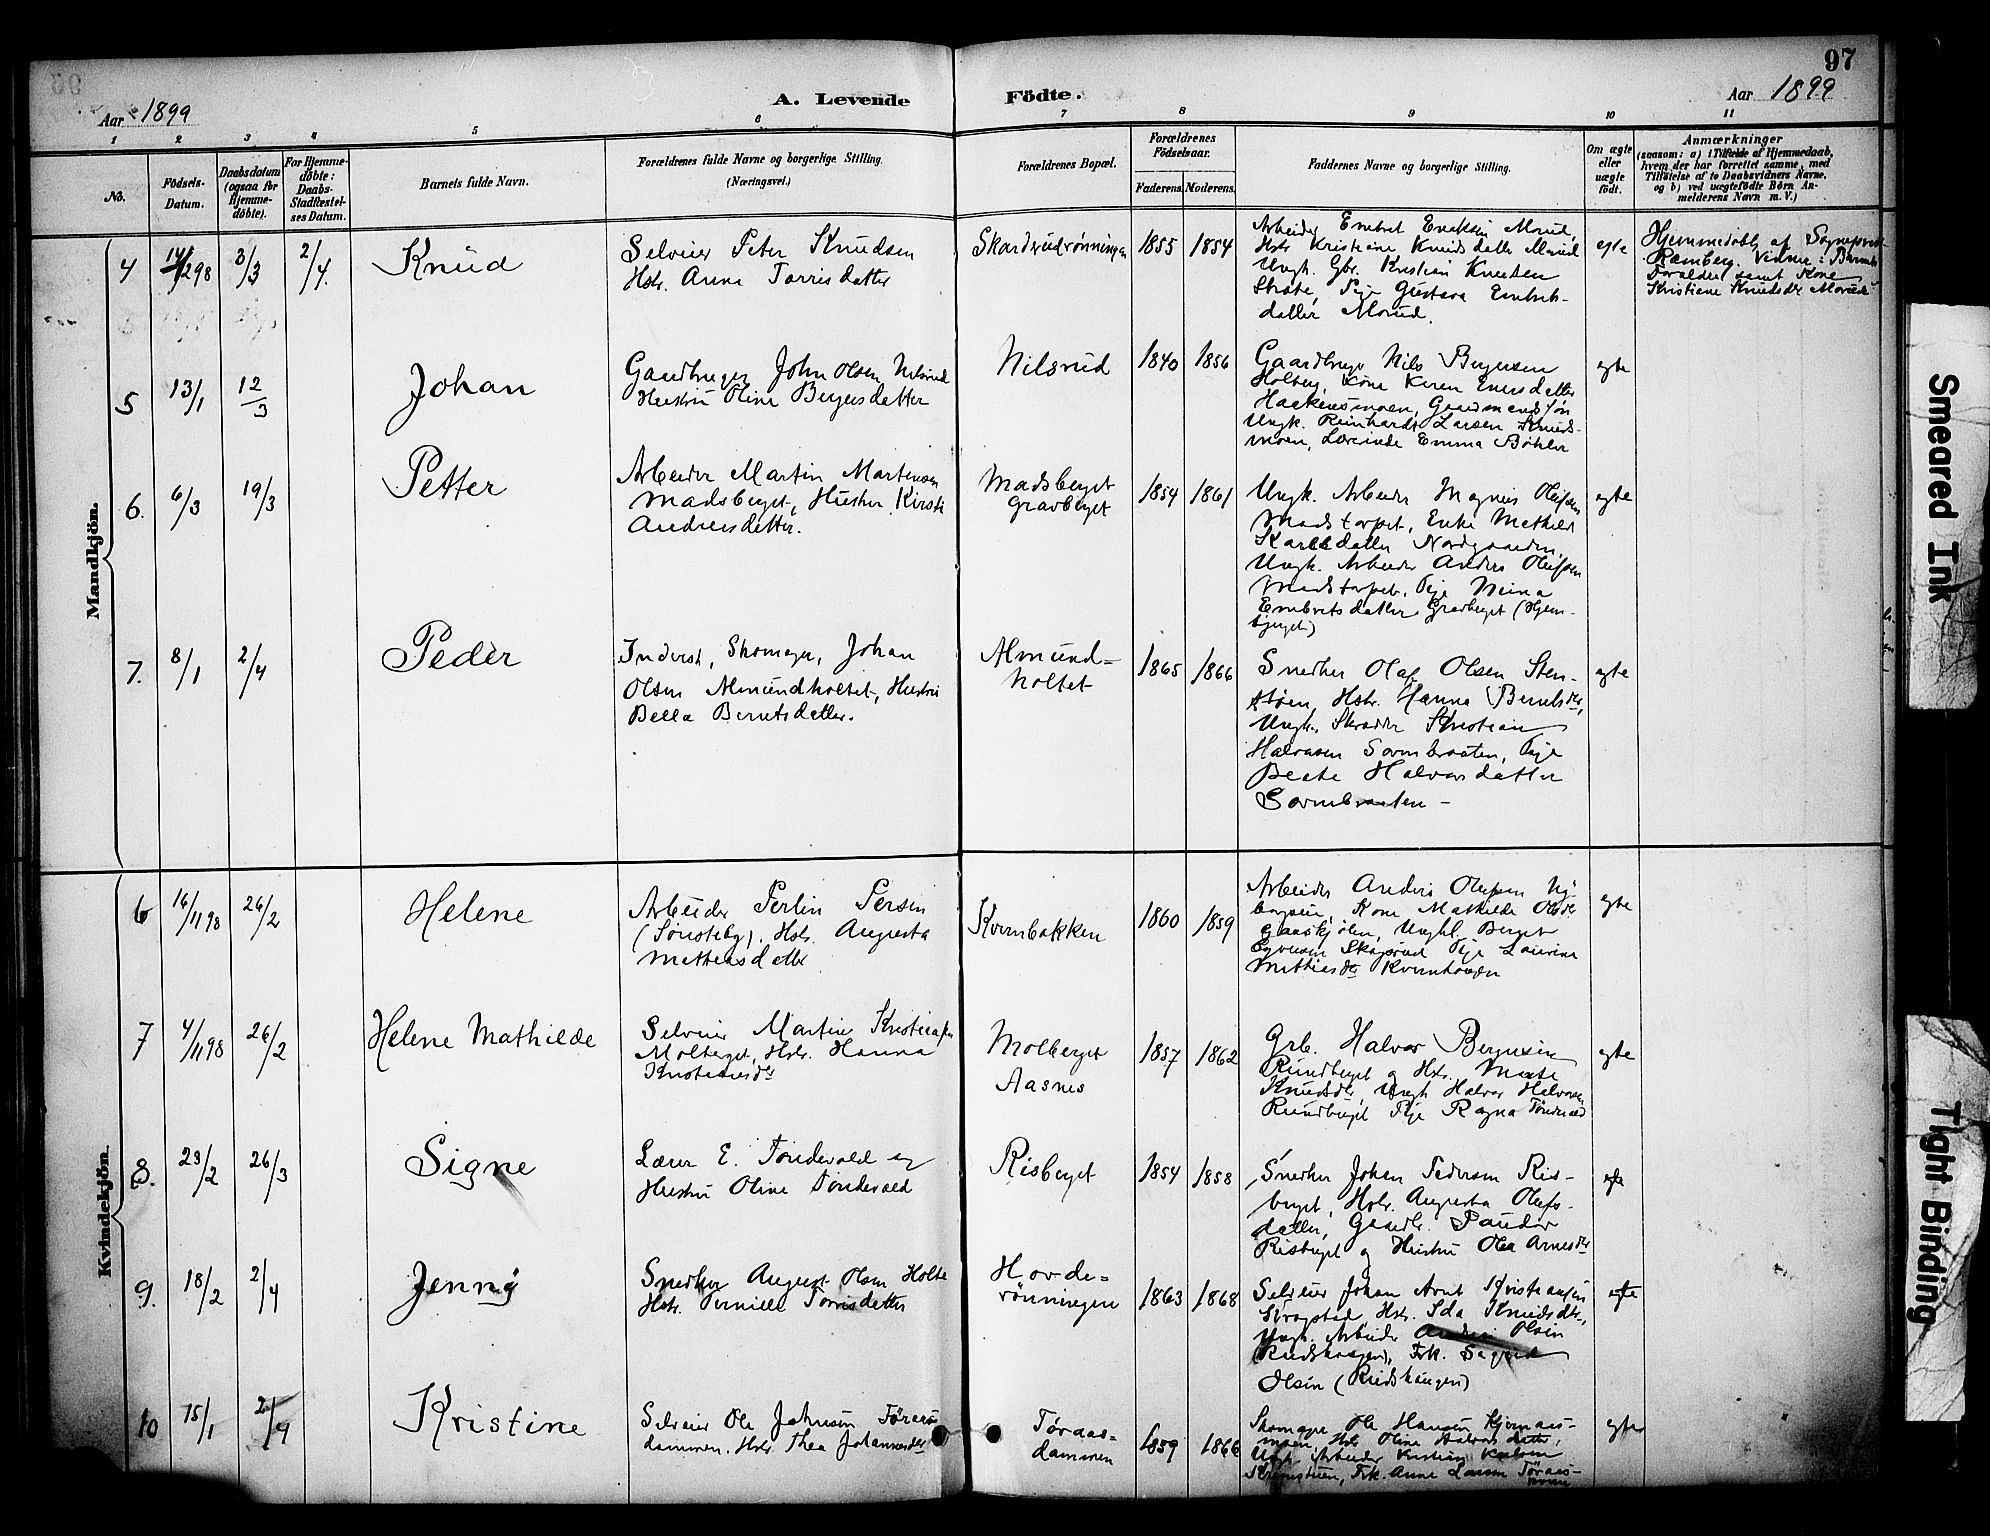 97
Aar 1899
A. Levende Födte.
Aar 1899
1 2 3 4 5 6 7 8 9 10 11
No.
Födsels-Datum.
Daabsdatum (ogsaa for Hjemme-döbte).
For Hjemme-döbte: Daabs-Stadfæstel-ses Datum.
Barnets fulde Navn.
Forældrenes fulde Navne og borgerlige Stilling.
(Næringsvei.)
Forældrenes Bopæl.
Forældrenes Födselsaar.
Faderens. Moderens.
Faddernes Navne og borgerlige Stilling.
Om ægte eller uægte födt.
Anmærkninger
(saasom: a) i Tilfælde af Hjemmedaab,
hvem der har forrettet samme, med
Tilföielse af to Daabsvidners Navne,
og b) ved uægtefödte Börn An-
melderens Navn m. V.)
Mandkjön.
4 14/12 98 3/3 2/4. Knud
Selveier Peter Knudsen
Hstr. Anna Torrisdatter
Skarderudrønningen 1855 1854
Arbeider Embret Eriksen Morud,
Hstr Kristiane Knudsdatter Morud
Ungk. Gbr. Kristian Knudsen
Pige Gustava Embrets-
datter Morud.
egte
Hjemmedøbt af Sogneprest
Ramberg. Vidner: Barnets
Forældre samt Kone
Kristiane Knudsdr Morud
5 13/1 12/3 Johan
Gaardbruger John Olsen Nilsrud
Hustru Oline Bergersdatter
Nilsrud 1840 1856
Gaardbruger Nils Bergersen
Holberg, Kone Karen Enersdatter
Haakensmoen, Gaardmandssøn
Ungk. Reinhardt Larsen Knuds-
moen, Lærerinde Emma Bøhler
egte
6. 6/3 19/3 Petter
Arbeider Martin Martinsen
Madsberget, Hustru Kirsti
Andreasdatter.
Madsberget
Gravberget
1854 1861
Ungk. Arbeider Magnus Olufsen
Madstorpet, Enke Mathilde
Karlsdatter Nordgaarden,
Ungk. Arbeider Anders Olufsen
Madstorpet, Pige Mina
Embretsdatter Gravberget (Hjem-
berget)
egte
7. 8/1 2/4 Peder
Inderst, Skomager, Johan
Olsen Almundholtet, Hustru
Bella Berntsdatter.
Almund=
holtet
1865 1866
Snedker Olaf Olsen Sten-
støen, Hstr. Hanna Berntsdr,
Ungk. Skrædder Kristian
Halvorsen Sormbraaten, Pige
Beate Halvorsdatter
Sormbraaten -
egte
Kvindekjön.
6 16/11 98 26/2 Helene
Arbeider Perlin Persen
(Sønsteby), Hstr. Augusta
Mathiasdatter
Kvernbakken 1860 1859
Arbeider Anders Olufsen
Kone Mathilde Olsdr
Ungk. Bernt
Pige Laurine
Mathiasdr Kvernhaugen
egte
7 4/11 98 26/2 Helene Mathilde
Selveier Martin Kristiansen
Molberget, Hstr. Hanna
Kristiansdr
Molberget
Aasnes
1857 1862
Grb. Halvor Bergersen
Rundberget og Hstr. Mate
Knudsdr, Ungk Halvor Halvorsen
Rundberget Pige Ragna Tøndevold
egte
8. 23/2 26/3 Signe
Lærer E. Tøndevold og
Hustru Oline Tøndevold
Risberget 1854 1858
Snedker Johan Pedersen Ris-
berget, Hstr. Augusta Olufs-
datter, Gaardbr. Pauder
Risberget og Hustru Olea Arnesdr
egte
9. 18/2 2/4 Jenny
Snedker August Olsen Holte
Hstr. Pernille Torrisdatter
Hovde=
rønningen
1863 1868
Selveier Johan Arnt Kristiansen
Skragstad Hstr. Ida Knudsdtr.,
Ungk. Arbeider Andreas Olsen
(Rudshaugen), Frk. Sigrid
Olsen (Rudshaugen)
egte
10 15/1 2/4 Kristine
Selveier Ole Johnsen Tøraas-
dammen. Hstr Thea Johannesdr
Tøraas=
dammen
1859 1866
Skomager Ole Hansen Kjernaas-
moen, Hstr Oline Halvorsdatter,
Ungk. Arbeider Kristian Karlsen
Frk. Anne Larsen Tøraas-
egte
Smeared Ink
Tight Binding